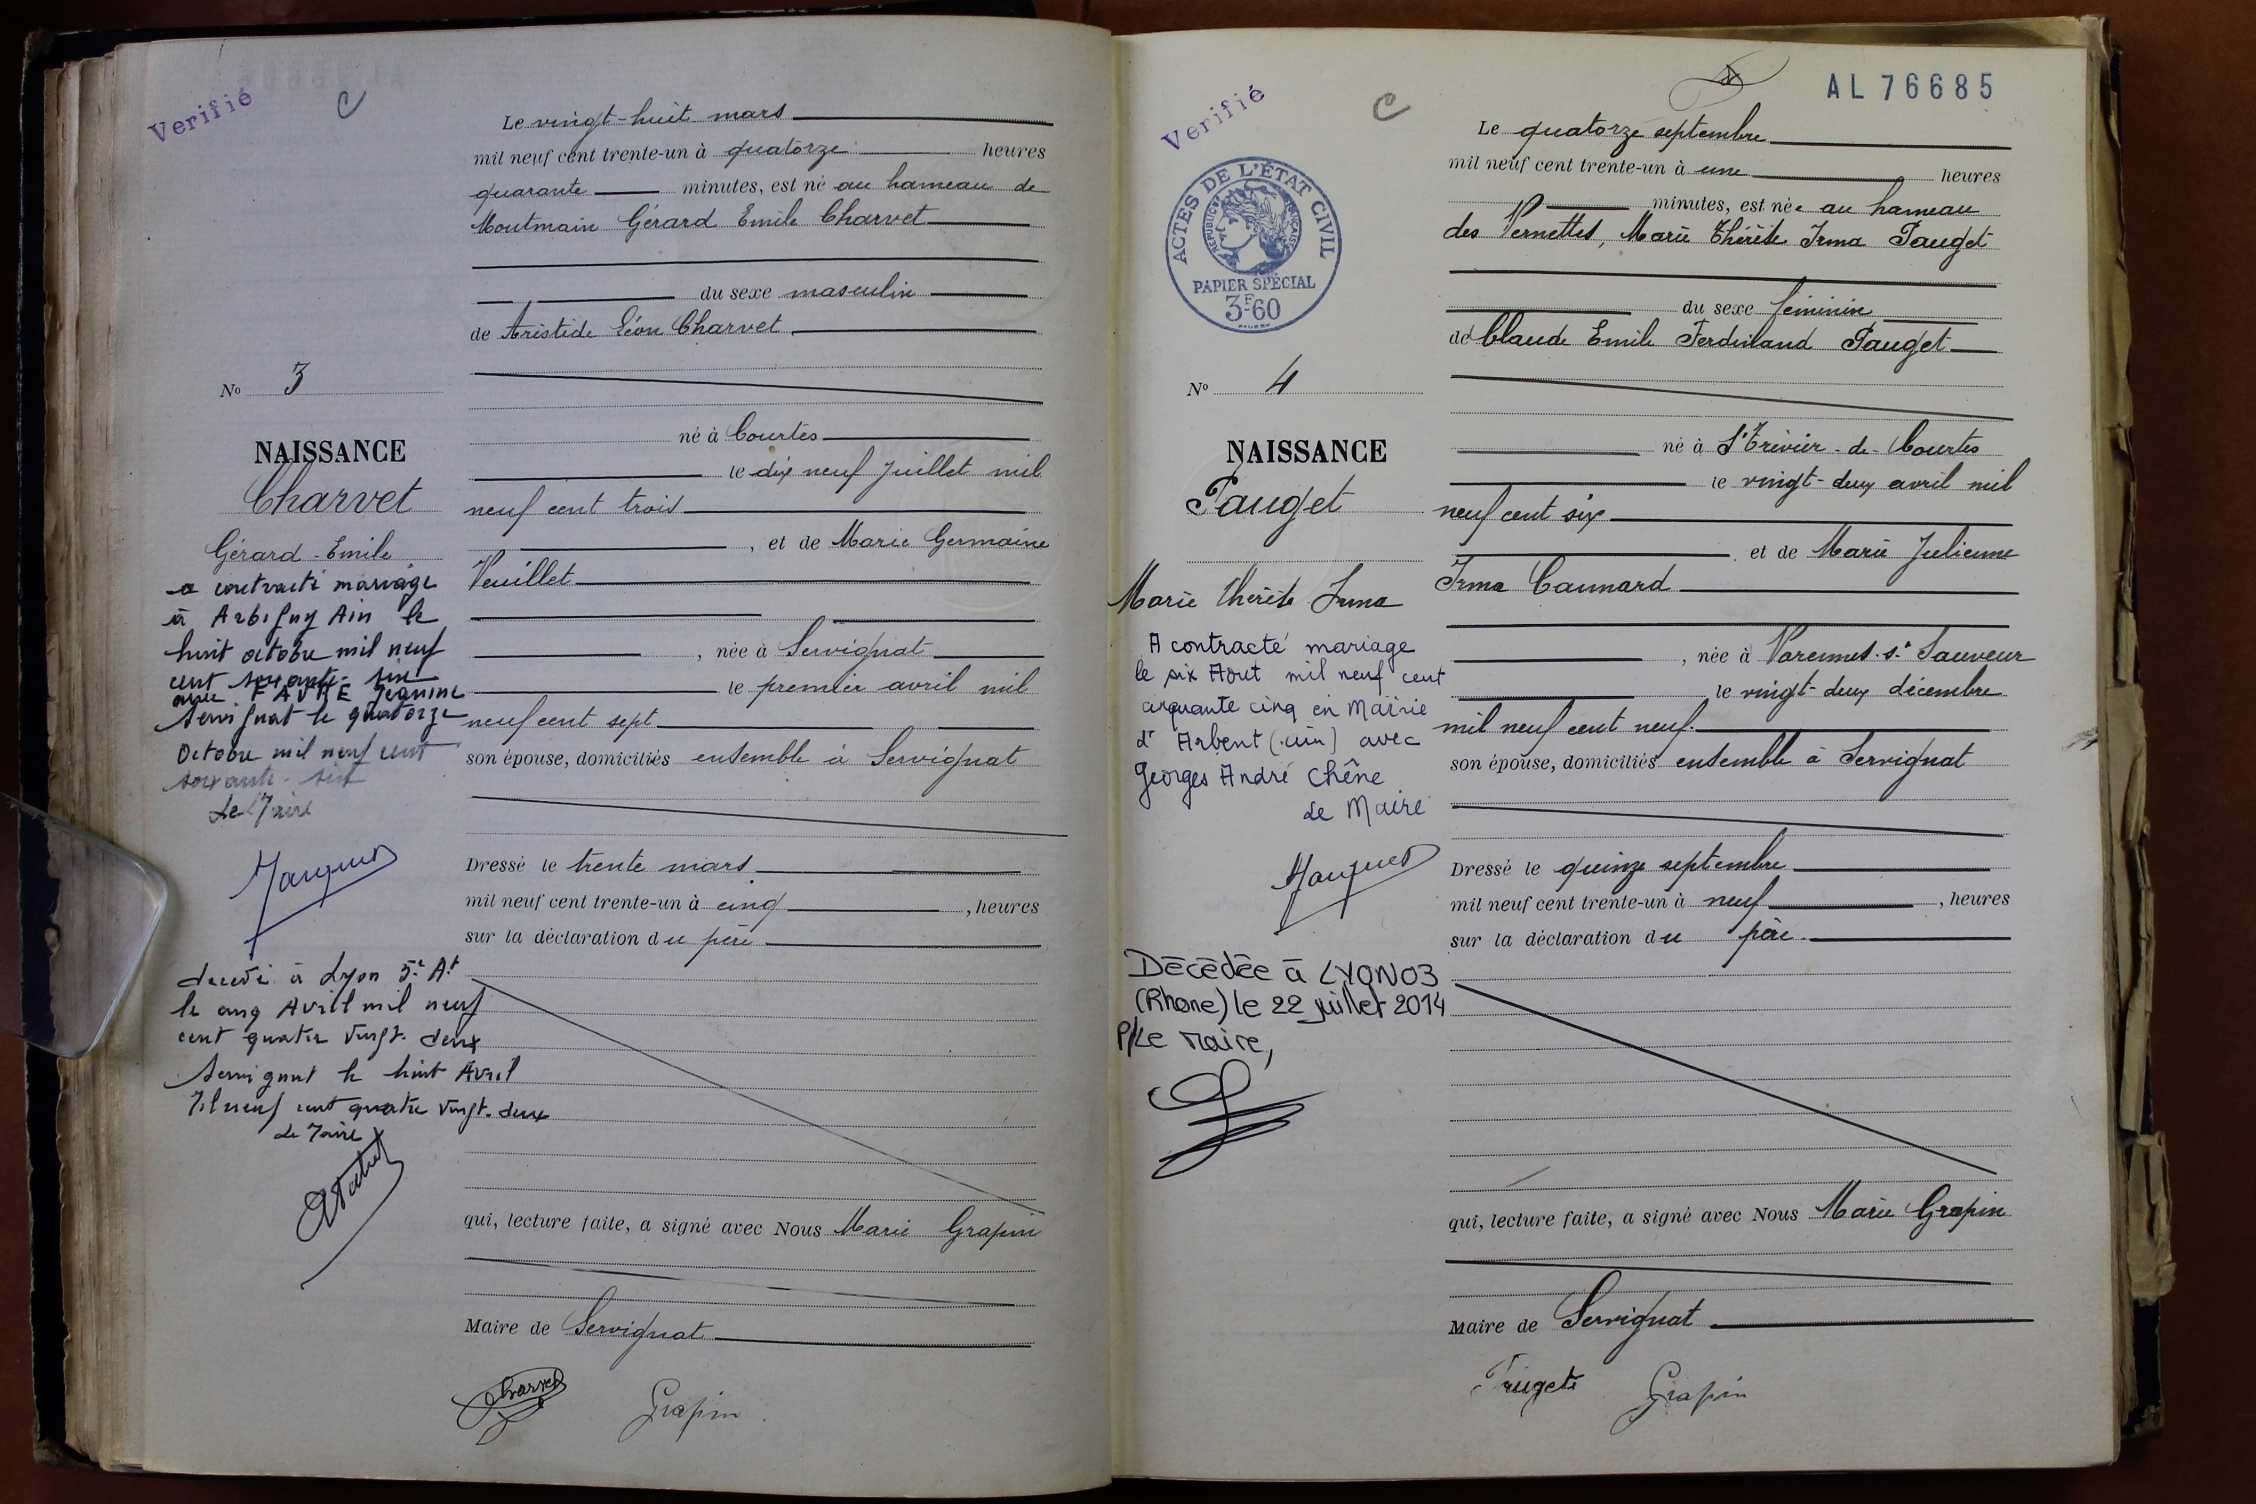 Verifié
C
Le vingt-huit mars
mil neuf cent trente-un à quatorze heures
quarante minutes, est né au hameau de
Montmain Gérard Emile Charvet
du sexe masculin
de Aristide Léon Charvet
né à Courtes
le dix neuf Juillet mil
neuf cent trois
, et de Marie Germaine
Veuillet
, née à Servignat
le premier avril mil
neuf cent sept
son épouse, domiciliés ensemble à Servignat
Dressé le trente mars
mil neuf cent trente-un à cinq , heures
sur la déclaration du père
qui, lecture faite, a signé avec Nous Marie Grapin
Maire de Servignat
Charvet
Grapin
No 3
NAISSANCE
Charvet
Gérard-Emile
a contracté mariage
à Arbigny Ain le
huit octobre mil neuf
cent soixante-six
avec FAVRE Jeanine
Servignat le quatorze
Octobre mil neuf cent
soixante-six
Le Maire
décédé à Lyon 5e At
le cinq Avril mil neuf
cent quatre vingt-deux
Servignat le huit Avril
Mil neuf cent quatre vingt-deux
Le Maire
AL 76685
Verifié
C
ACTES DE L'ÉTAT CIVIL
RÉPUBLIQUE FRANÇAISE
PAPIER SPÉCIAL
3F60
Le quatorze septembre
mil neuf cent trente-un à une heures
minutes, est née au hameau
des Vernettes, Marie Thérèse Irma Pauget
du sexe féminin
de Claude Emile Ferdinand Pauget
né à St Trivier-de-Courtes
le vingt-deux avril mil
neuf cent six
et de Marie Julienne
Irma Cannard
, née à Varennes-St Sauveur
le vingt-deux décembre
mil neuf cent neuf
son épouse, domiciliés ensemble à Servignat
Dressé le quinze septembre
mil neuf cent trente-un à neuf , heures
sur la déclaration du père
qui, lecture faite, a signé avec Nous Marie Grapin
Maire de Servignat
Pauget
Grapin
No 4
NAISSANCE
Pauget
Marie Thérèse Irma
A contracté mariage
le six Aout mil neuf cent
cinquante cinq en Mairie
d'Arbent (Ain) avec
Georges André Chêne
Le Maire
Décédée à LYON03
(Rhône) le 22 juillet 2014
P/Le Maire,